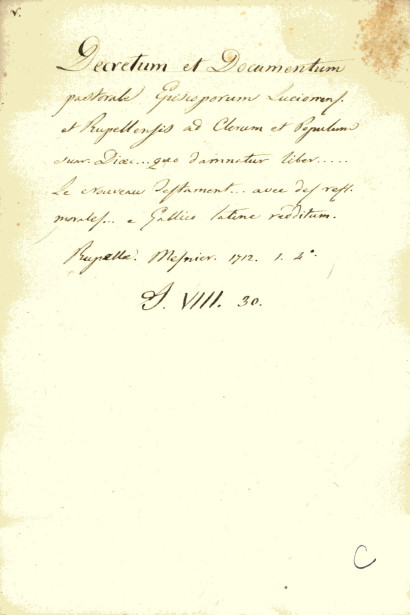 v.
Decretum et Documentum
pastorale Episcoporum Lucionens.
et Rupellensis ad Clerum et Populum
suar. Diœ... quo damnatur liber.....
Le Nouveau Testament... avec des refl.
morales... e Gallico latine redditum.
Rupellæ. Mesnier. 1712. 1. 4°.
S. VIII. 30.
C